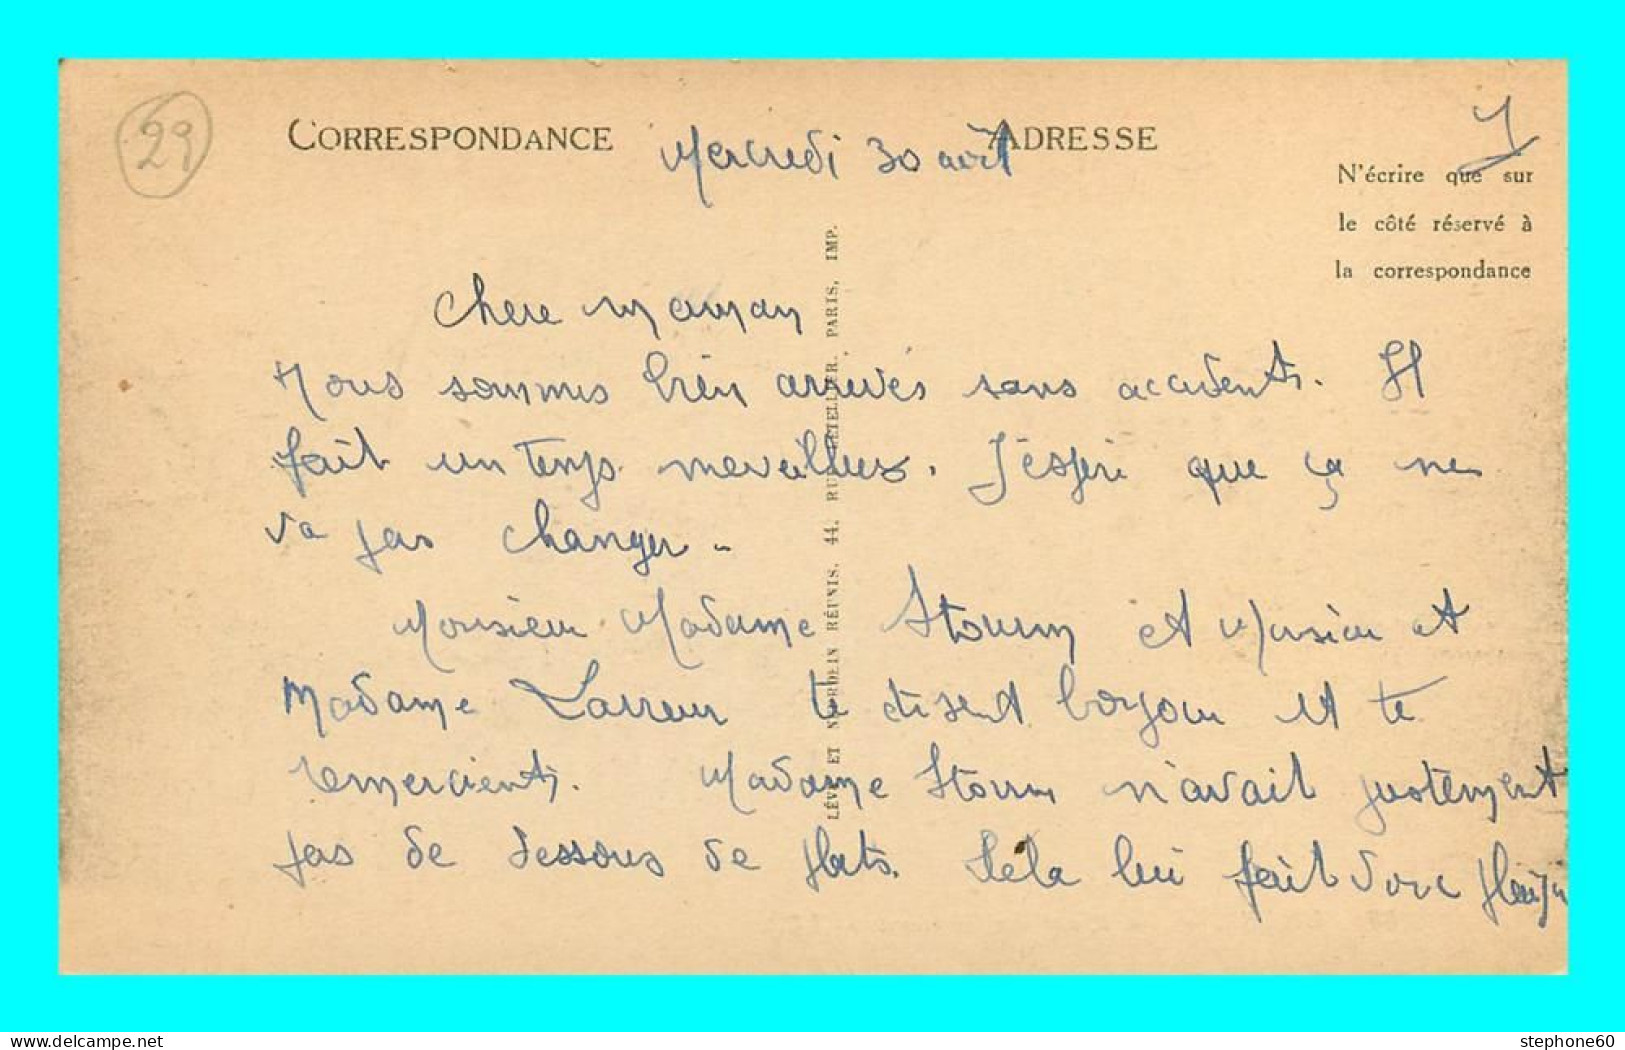 29
CORRESPONDANCE
ADRESSE
Mercredi 30 avril
N'écrire que sur
le côté réservé à
la correspondance
Chere maman
Nous sommes bien arrivés sans accidents. Il
fait un temps merveilleux. J'espère que ça ne
va pas changer.
Monsieur Madame Stourm et Monsieur et
Madame Larreur te disent bonjour et te
remercient. Madame Stourm n'avait justement
pas de dessous de plats. Cela lui fait donc plaisir
LÉVY ET NEURDEIN RÉUNIS, 44, RUE LETELLIER, PARIS, IMP.
www.delcampe.net
stephone60